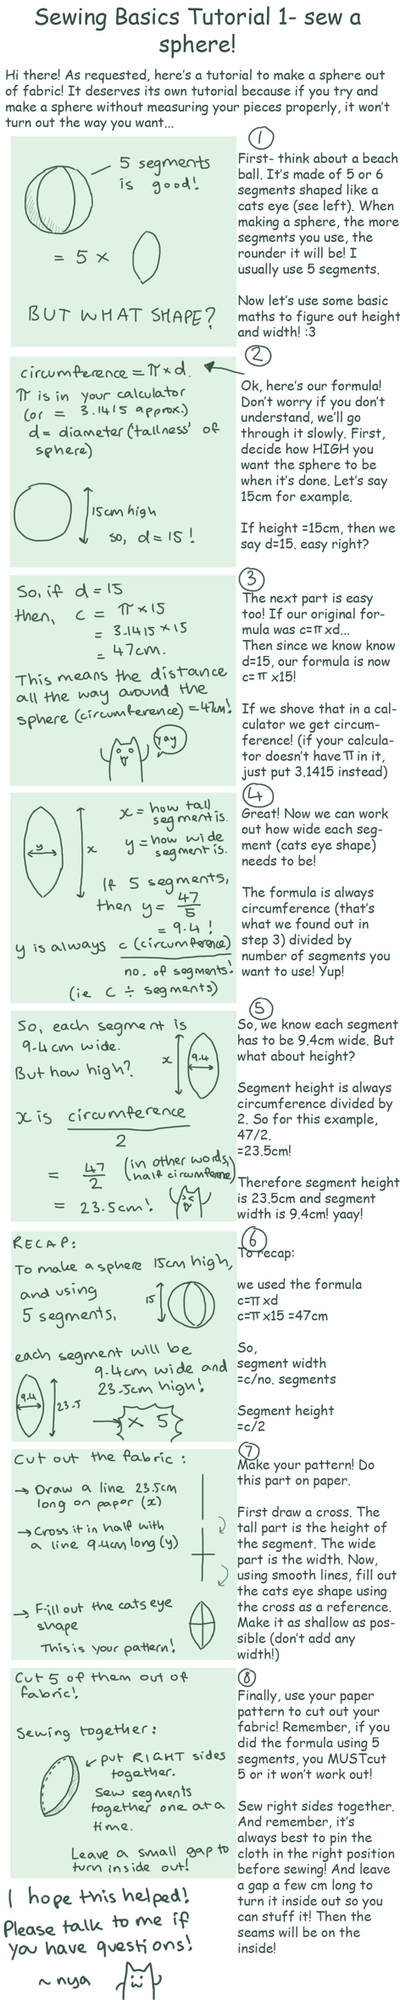 Sewing Basics Tutorial 1- sew a
sphere!
Hi there! As requested, here's a tutorial to make a sphere out
of fabric! It deserves its own tutorial because if you try and
make a sphere without measuring your pieces properly, it won't
turn out the way you want...
5 segments
is good!
= 5 ×
BUT WHAT SHAPE?
1
First- think about a beach
ball. It's made of 5 or 6
segments shaped like a
cats eye (see left). When
making a sphere, the more
segments you use, the
rounder it will be! I
usually use 5 segments.
Now let's use some basic
maths to figure out height
and width! :3
circumference = π × d.
π is in your calculator
(or = 3.1415 approx.)
d = diameter ('tallness' of
sphere)
15cm high
so, d = 15!
2
Ok, here's our formula!
Don't worry if you don't
understand, we'll go
through it slowly. First,
decide how HIGH you
want the sphere to be
when it's done. Let's say
15cm for example.
If height =15cm, then we
say d=15. easy right?
So, if d = 15
then, c = π × 15
= 3.1415 × 15
= 47cm.
This means the distance
all the way around the
sphere (circumference) = 47cm!
yay
3
The next part is easy
too! If our original for-
mula was c=πxd...
Then since we know know
d=15, our formula is now
c= π x15!
If we shove that in a cal-
culator we get circum-
ference! (if your calcula-
tor doesn't have π in it,
just put 3.1415 instead)
y
x
x = how tall
segment is.
y = how wide
segment is.
If 5 segments,
then y = 47
5
= 9.4!
y is always c (circumference)
no. of segments!
(ie c ÷ segments)
4
Great! Now we can work
out how wide each seg-
ment (cats eye shape)
needs to be!
The formula is always
circumference (that's
what we found out in
step 3) divided by
number of segments you
want to use! Yup!
So, each segment is
9.4cm wide.
But how high?
x
9.4
x is circumference
2
= 47 (in other words,
2 half circumference)
= 23.5cm!
5
So, we know each segment
has to be 9.4cm wide. But
what about height?
Segment height is always
circumference divided by
2. So for this example,
47/2.
=23.5cm!
Therefore segment height
is 23.5cm and segment
width is 9.4cm! yaay!
RECAP:
To make a sphere 15cm high,
and using
5 segments,
15
each segment will be
9.4cm wide and
23.5cm high!
9.4
23.5
× 5
6
To recap:
we used the formula
c=πxd
c=πx15 =47cm
So,
segment width
=c/no. segments
Segment height
=c/2
Cut out the fabric:
→ Draw a line 23.5cm
long on paper (x)
→ Cross it in half with
a line 9.4cm long (y)
→ Fill out the cats eye
shape
This is your pattern!
7
Make your pattern! Do
this part on paper.
First draw a cross. The
tall part is the height of
the segment. The wide
part is the width. Now,
using smooth lines, fill out
the cats eye shape using
the cross as a reference.
Make it as shallow as pos-
sible (don't add any
width!)
Cut 5 of them out of
fabric!
Sewing together:
put RIGHT sides
together.
Sew segments
together one at a
time.
Leave a small gap to
turn inside out!
8
Finally, use your paper
pattern to cut out your
fabric! Remember, if you
did the formula using 5
segments, you MUSTcut
5 or it won't work out!
Sew right sides together.
And remember, it's
always best to pin the
cloth in the right position
before sewing! And leave
a gap a few cm long to
turn it inside out so you
can stuff it! Then the
seams will be on the
inside!
I hope this helped!
Please talk to me if
you have questions!
~ nya